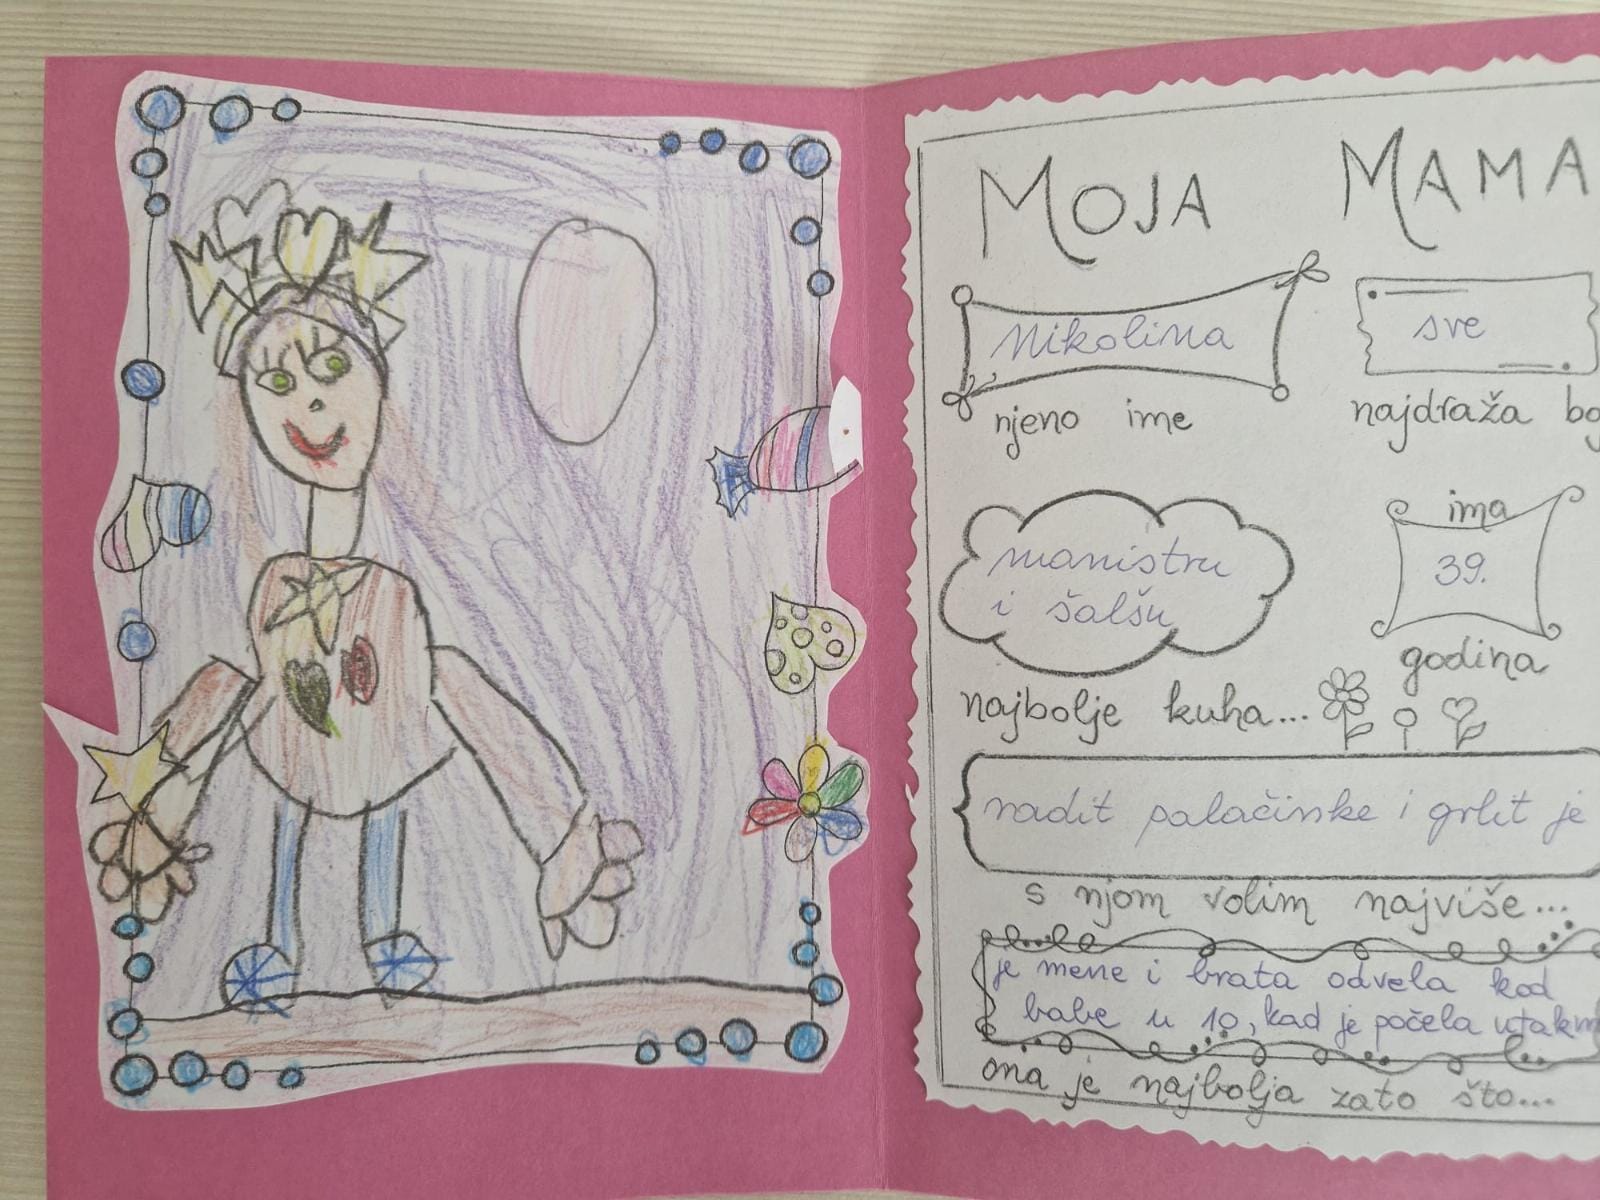 MOJA MAMA
Nikolina
njeno ime
sve
najdraža
manistru
i šalšu
najbolje kuha...
ima
39.
godina
radit palačinke i grlit je
s njom volim najviše...
je mene i brata odvela kod
babe u 10, kad je počela
ona je najbolja zato što...